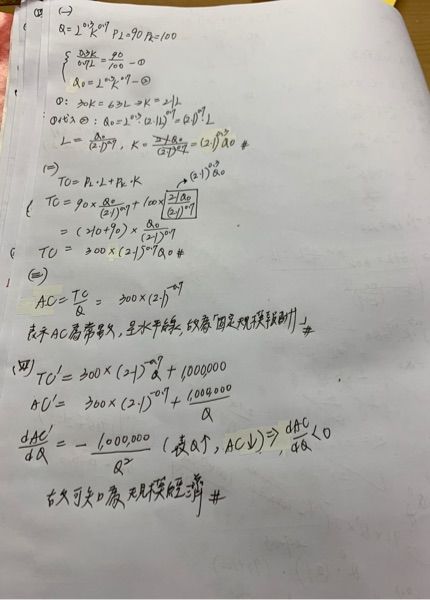 (一)
Q = L^0.3 K^0.7 P_L = 90 P_K = 100
{ 0.3K / 0.7L = 90 / 100 - ①
Q_0 = L^0.3 K^0.7 - ②
①: 30K = 63L → K = 2.1L
①代入②: Q_0 = L^0.3 (2.1L)^0.7 = (2.1)^0.7 L
L = Q_0 / (2.1)^0.7, K = 2.1Q_0 / (2.1)^0.7 = (2.1)^0.3 Q_0 #
(二)
TC = P_L · L + P_K · K → (2.1)^0.3 Q_0
TC = 90 × Q_0 / (2.1)^0.7 + 100 × 2.1Q_0 / (2.1)^0.7
= (210 + 90) × Q_0 / (2.1)^0.7
TC = 300 × (2.1)^-0.7 Q_0 #
(三)
AC = TC / Q = 300 × (2.1)^-0.7
表示AC為常數,呈水平線,故為「固定規模報酬」#
(四)
TC' = 300 × (2.1)^-0.7 Q + 1,000,000
AC' = 300 × (2.1)^-0.7 + 1,000,000 / Q
dAC' / dQ = - 1,000,000 / Q² (表Q↑, AC↓) ⇒ dAC / dQ < 0
故可知為規模經濟 #